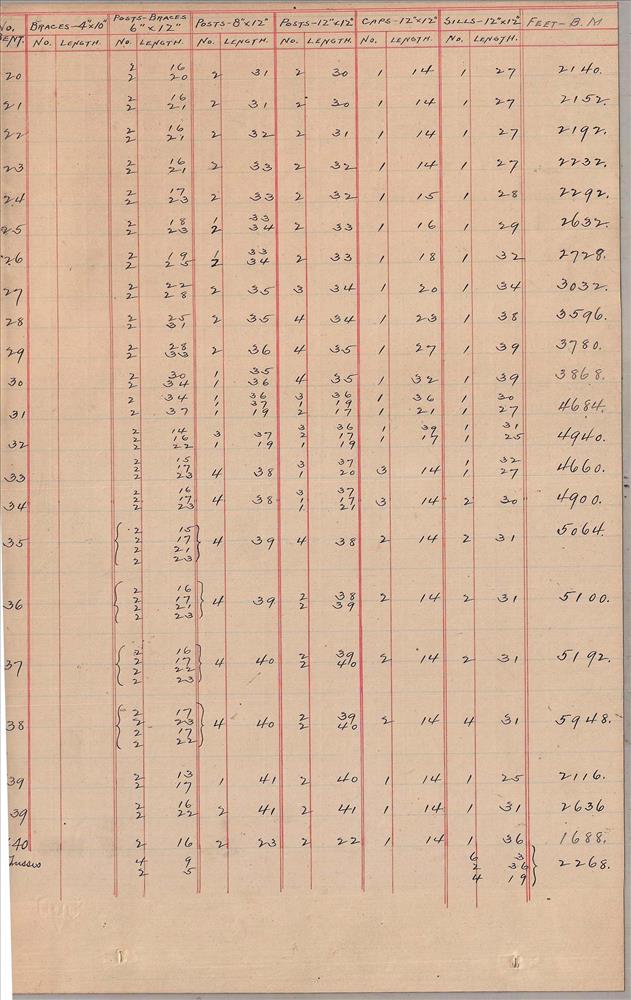 No. BENT. BRACES-4"x10" POSTS-BRACES 6"x12" POSTS-8"x12" POSTS-12"x12" CAPS-12"x12" SILLS-12"x12" FEET-B.M
No. LENGTH. No. LENGTH. No. LENGTH. No. LENGTH. No. LENGTH. No. LENGTH.
2 16
20 2 20 2 31 2 30 1 14 1 27 2140.
2 16
21 2 21 2 31 2 30 1 14 1 27 2152.
2 16
22 2 21 2 32 2 31 1 14 1 27 2192.
2 16
23 2 21 2 33 2 32 1 14 1 27 2232.
2 17
24 2 23 2 33 2 32 1 15 1 28 2292.
2 18 1 33
25 2 23 2 34 2 33 1 16 1 29 2632.
2 19 1 33
26 2 25 2 34 2 33 1 18 1 32 2728.
2 22
27 2 28 2 35 3 34 1 20 1 34 3032.
2 25
28 2 31 2 35 4 34 1 23 1 38 3596.
2 28
29 2 33 2 36 4 35 1 27 1 39 3780.
2 30 1 35
30 2 34 1 36 4 35 1 32 1 39 3868.
2 34 1 36 3 36 1 36 1 30
1 37 1 19
31 2 37 1 19 2 17 1 21 1 27 4684.
2 14 3 36 1 39 1 31
2 16 3 37 2 17 1 17 1 25
32 2 22 1 19 1 19 4940.
2 15 3 37 1 32
2 17
33 2 23 4 38 1 20 3 14 1 27 4660.
2 16 3 37
2 17 1 17
34 2 23 4 38 1 21 3 14 2 30 4900.
2 15
2 17
35 2 21 4 39 4 38 2 14 2 31 5064.
2 23
2 16
2 17 2 38
36 2 21 4 39 2 39 2 14 2 31 5100.
2 23
2 16
2 17 2 39
37 2 22 4 40 2 40 2 14 2 31 5192.
2 23
2 17
2 23 2 39
38 2 17 4 40 2 40 2 14 4 31 5948.
2 22
2 13
39 2 17 1 41 2 40 1 14 1 25 2116.
2 16
39 2 22 2 41 2 41 1 14 1 31 2636
40 2 16 2 23 2 22 1 14 1 36 1688.
4 9 6 3
2 5 2 36 2268.
4 19